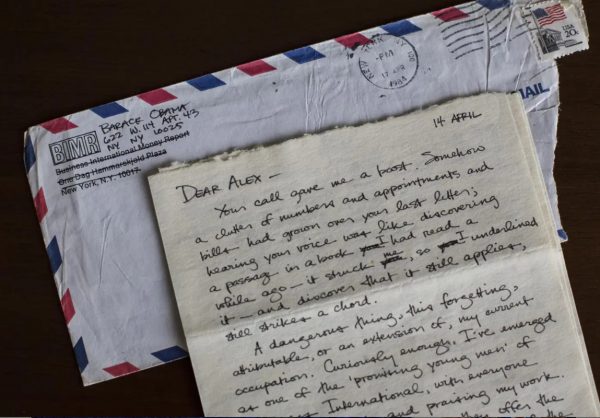 BARACK OBAMA
622 W. 114 APT. 43
NY NY 10025
BIMR
Business International Money Report
One Dag Hammarskjold Plaza
New York, N.Y. 10017
NEW YORK, NY 100
PM
17 APR
1984
USA
20c
MAIL
14 APRIL
DEAR ALEX —
Your call gave me a Somehow
a clutter of numbers and appointments and
bills had grown over your last letter;
hearing your voice was like discovering
a passage in a book I had read a
while ago — it struck me, so I underlined
it — and discover that it still applies,
still strikes a chord.
A dangerous thing, this forgetting,
attributable, or an extension of, my current
occupation. Curiously enough, I've emerged
as one of the "promising young men" of
International, with everyone
and praising my work.
offer the